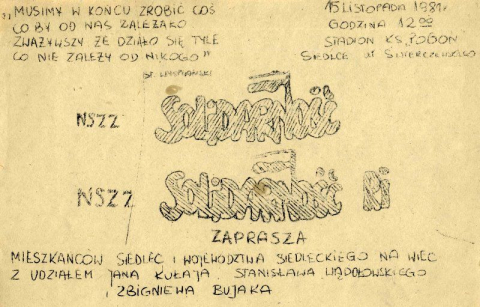 „MUSIMY W KOŃCU ZROBIĆ COŚ
CO BY OD NAS ZALEŻAŁO
ZWAŻYWSZY ŻE DZIAŁO SIĘ TYLE
CO NIE ZALEŻY OD NIKOGO"
ST. WYSPIAŃSKI
15 LISTOPADA 1981r
GODZINA 12 00
STADION KS „POGOŃ"
SIEDLCE ul ŚWIERCZEWSKIEGO
NSZZ SOLIDARNOŚĆ
NSZZ SOLIDARNOŚĆ RI
ZAPRASZA
MIESZKAŃCÓW SIEDLEC I WOJEWÓDZTWA SIEDLECKIEGO NA WIEC
Z UDZIAŁEM JANA KUŁAJA STANISŁAWA WĄDOŁOWSKIEGO
I ZBIGNIEWA BUJAKA